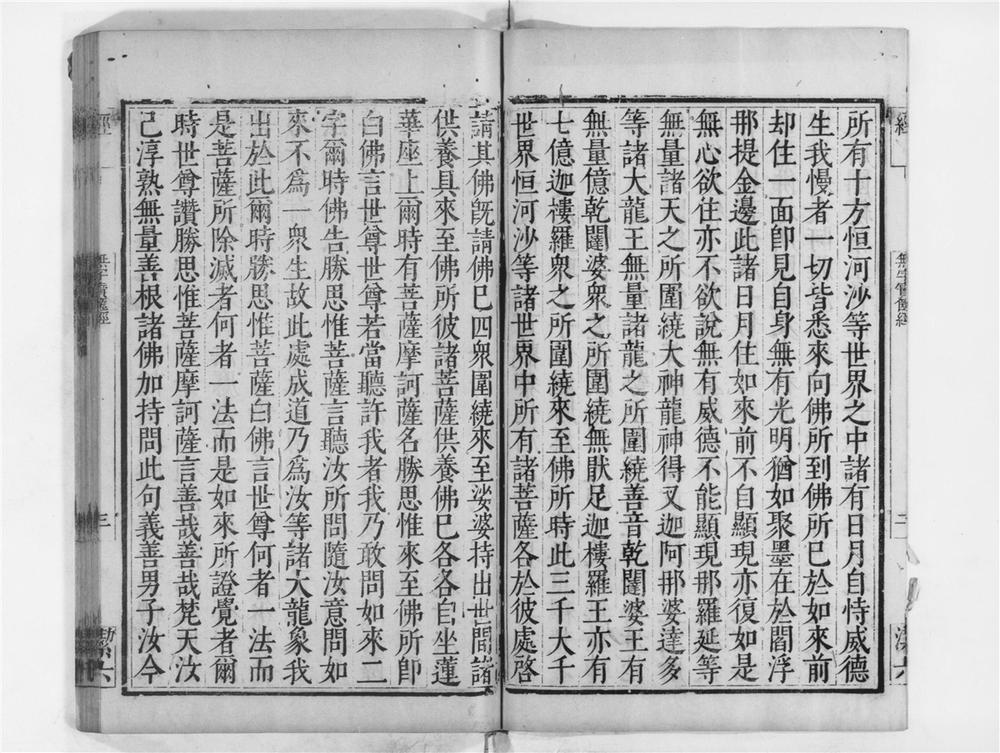 所有十方恒河沙等世界之中諸有日月自恃威德
生我慢者一切皆悉來向佛所到佛所已於如來前
却住一面卽見自身無有光明猶如聚墨在於閻浮
那提金邊此諸日月住如來前不自顯現亦復如是
無心欲往亦不欲說無有威德不能顯現那羅延等
無量諸天之所圍繞大神龍神得叉迦阿那婆達多
等諸大龍王無量諸龍之所圍繞善音乾闥婆王有
無量億乾闥婆衆之所圍繞無猒足迦樓羅王亦有
七億迦樓羅衆之所圍繞來至佛所時此三千大千
世界恒河沙等諸世界中所有諸菩薩各於彼處啓
請其佛旣請佛已四衆圍繞來至娑婆持出世間諸
供養具來至佛所彼諸菩薩供養佛已各各自坐蓮
華座上爾時有菩薩摩訶薩名勝思惟來至佛所卽
白佛言世尊世尊若當聽許我者我乃敢問如來二
字爾時佛告勝思惟菩薩言聽汝所問隨汝意問如
來不爲一衆生故此處成道乃爲汝等諸大龍象我
出於此爾時勝思惟菩薩白佛言世尊何者一法而
是菩薩所除滅者何者一法而是如來所證覺者爾
時世尊讚勝思惟菩薩摩訶薩言善哉善哉梵天汝
已淳熟無量善根諸佛加持問此句義善男子汝今
經
無字寶篋經
三